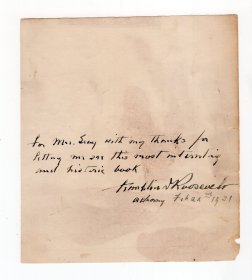 For Mrs. Gray with my thanks for
letting me see this most interesting
and historic book
Franklin D Roosevelt
Albany Feb 1931